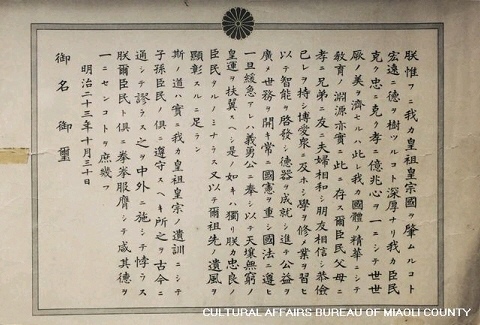 朕惟フニ我カ皇祖皇宗國ヲ肇ムルコト
宏遠ニ德ヲ樹ツルコト深厚ナリ我カ臣民
克ク忠ニ克ク孝ニ億兆心ヲ一ニシテ世世
厥ノ美ヲ濟セルハ此レ我カ國體ノ精華ニシテ
教育ノ淵源亦實ニ此ニ存ス爾臣民父母ニ
孝ニ兄弟ニ友ニ夫婦相和シ朋友相信シ恭儉
己レヲ持シ博愛衆ニ及ホシ學ヲ修メ業ヲ習ヒ
以テ智能ヲ啓發シ德器ヲ成就シ進テ公益ヲ
廣メ世務ヲ開キ常ニ國憲ヲ重シ國法ニ遵ヒ
一旦緩急アレハ義勇公ニ奉シ以テ天壤無窮ノ
皇運ヲ扶翼スヘシ是ノ如キハ獨リ朕カ忠良ノ
臣民タルノミナラス又以テ爾祖先ノ遺風ヲ
顯彰スルニ足ラン
斯ノ道ハ實ニ我カ皇祖皇宗ノ遺訓ニシテ
子孫臣民ノ俱ニ遵守スヘキ所之ヲ古今ニ
通シテ謬ラス之ヲ中外ニ施シテ悖ラス
朕爾臣民ト俱ニ拳拳服膺シテ咸其德ヲ
一ニセンコトヲ庶幾フ
明治二十三年十月三十日
御名御璽
CULTURAL AFFAIRS BUREAU OF MIAOLI COUNTY